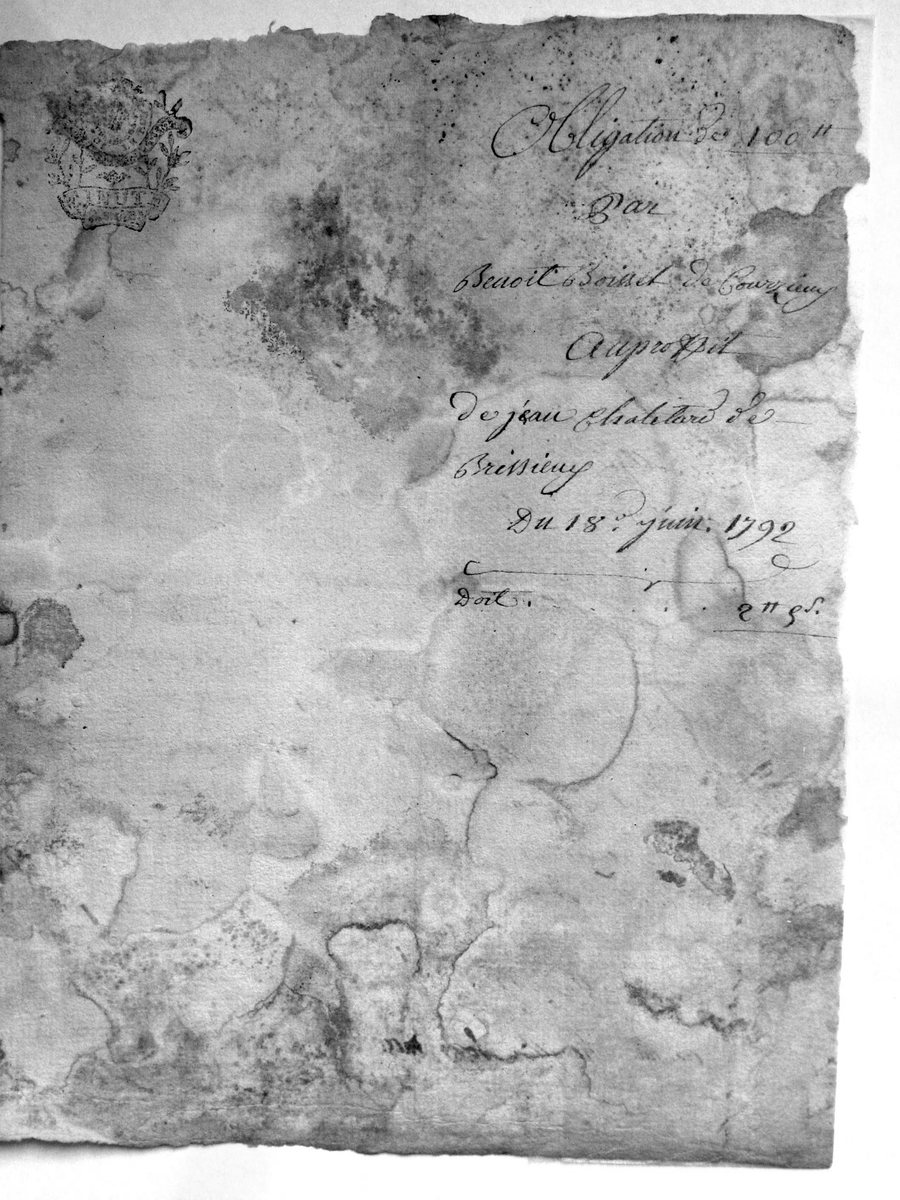 MINUT
Obligation de 100 ₶
Par
Benoit Boisset de Courzieux
Au proffit
de jean Chaletard de
Brissieux
Du 18e. juin. 1792
Doit. . . . . 2 ₶ 5 s.